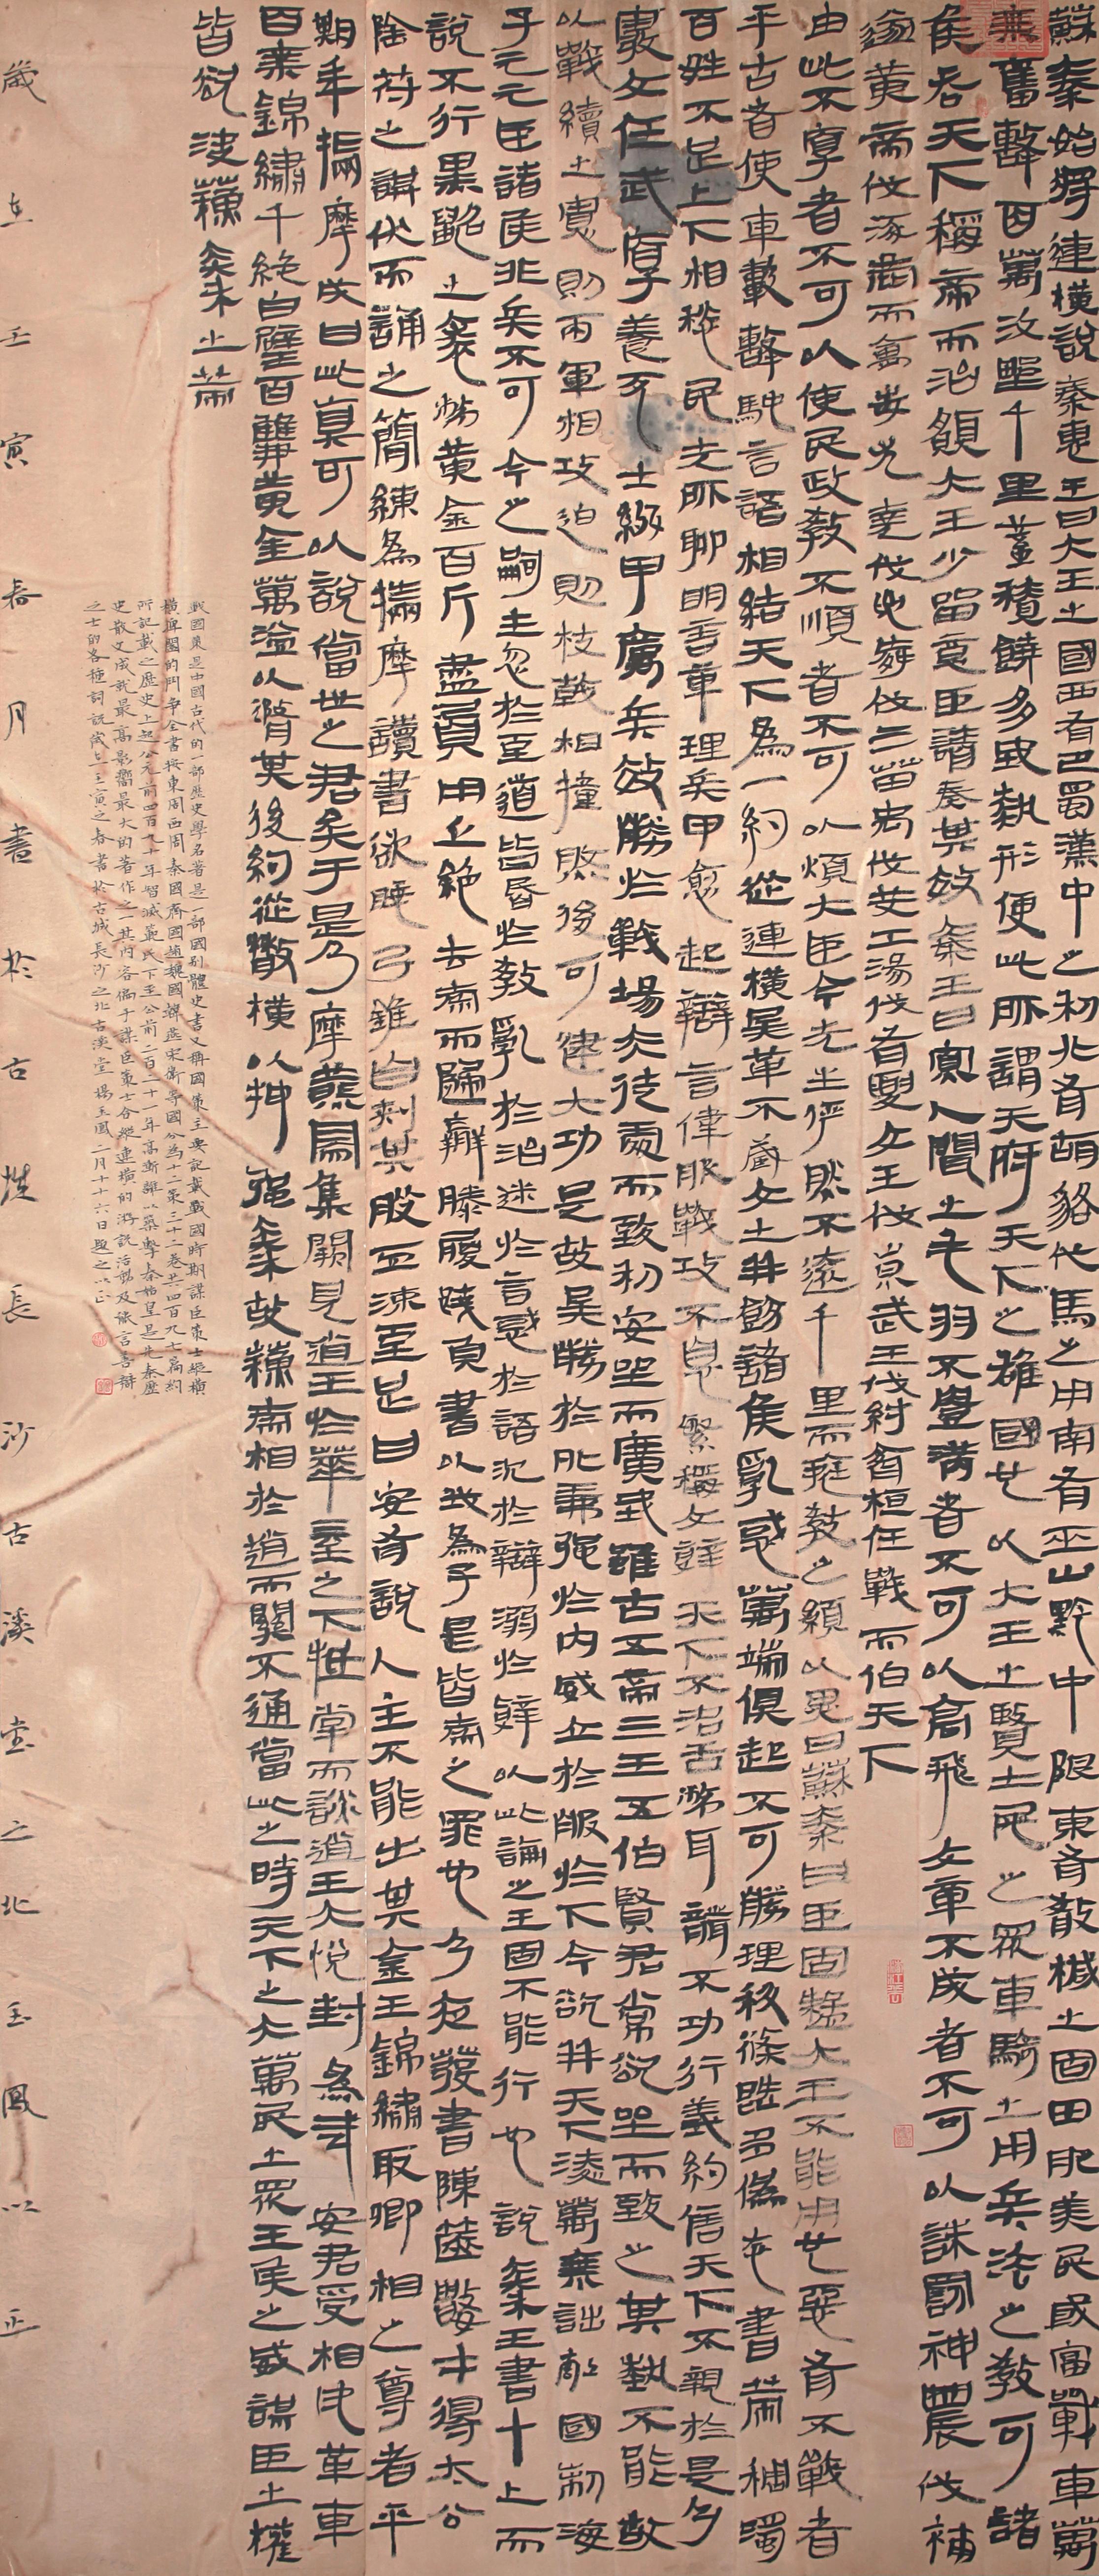 蘇秦始將連橫說秦惠王曰大王之國西有巴蜀漢中之利北有胡貉代馬之用南有巫山黔中之限東有殽㮄之固田肥美民殷富戰車萬
乘奮擊百萬沃野千里蓄積饒多地埶形便此所謂天府天下之雄國也以大王之賢士民之眾車騎之用兵法之教可并諸
侯吞天下稱帝而治願大王少留意臣請奏其效秦王曰寡人聞之毛羽不豐滿者不可以高飛文章不成者不可以誅罰神農伐補
遂黃帝伐涿鹿而禽蚩尤堯伐驩兜舜伐三苗禹伐共工湯伐有夏文王伐崇武王伐紂齊桓任戰而伯天下
由此不厚者不可以使民政教不順者不可以煩大臣今先生儼然不遠千里而庭教之願以異日蘇秦曰臣固疑大王不能用也惡有不戰者
乎古者使車轂擊馳言語相結天下為一約從連橫兵革不藏文士并飭諸侯亂惑萬端俱起不可勝理科條既多偽態書策稠濁
百姓不足上下相愁民無所聊明言章理兵甲愈起辯言偉服戰攻不息繁稱文辭天下不治舌弊耳聾不功行義約信天下不親於是乃
廢文任武厚養死士綴甲厲兵效勝於戰場夫徒處而致利安坐而廣地雖古五帝三王五伯賢君常欲坐而致之其埶不能故
以戰續之寬則兩軍相攻迫則杖戟相撞然後可建大功是故兵勝於外義強於內威立於上服於下今欲并天下淩萬乘詘敵國制海
子元元臣諸侯非兵不可今之嗣主忽於至道皆惛於教亂於治迷於言惑於語沉於辯溺於辭以此論之王固不能行也說秦王書十上而
說不行黑貂之裘弊黃金百斤盡資用乏絕去秦而歸羸縢履蹻負書以我為子是皆秦之罪也乃夜發書陳篋數十得太公
陰符之謀伏而誦之簡練為揣摩讀書欲睡引錐自刺其股血流至足曰安有說人主不能出其金玉錦繡取卿相之尊者乎
期年揣摩成曰此真可以說當世之君矣于是乃摩燕烏集闕見趙王於華屋之下抵掌而談趙王大悅封為武安君受相印革車
百乘錦繡千純白璧百雙黃金萬溢以隨其後約從散橫以抑強秦故蘇秦相於趙而關不通當此之時天下之大萬民之眾王侯之威謀臣之權
皆欲決蘇秦之策
戰國策是中國古代的一部歷史學名著是一部國別體史書又稱國策主要記載戰國時期謀臣策士縱橫
橫捭闔的鬥爭全書按東周西周秦國齊國趙魏國韓燕宋衛等國分為十二策三十三卷共四百九十七篇約
所記載之歷史上起公元前四百九十年智滅范氏下至公前二百二十一年高漸離以築擊秦始皇是先秦歷
史散文成就最高影響最大的著作之一其內容偏于謀臣策士合縱連橫的游說活動及儀言善辯
之士的各種詞說歲在壬寅之春書於古城長沙之北古溪堂楊玉鳳二月十六日題之以正
歲在壬寅春月書於古城長沙古溪堂之北玉鳳以正